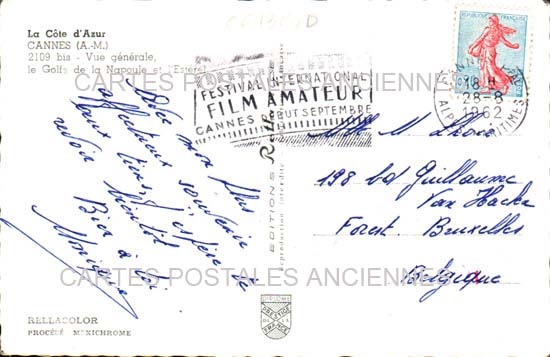 La Côte d'Azur
CANNES (A.-M.)
2109 bis - Vue générale,
le Golfe de la Napoule et l'Esterel
Mon plus
affectueux souvenir
à vous tous, j'espère te
revoir bientôt
Bien à toi
Monique
RELLACOLOR
PROCÉDÉ MEXICHROME
EDITIONS Rella
Reproduction interdite
DIPLOME
PRESTIGE
DE LA
FRANCE
FESTIVAL INTERNATIONAL
FILM AMATEUR
CANNES DEBUT SEPTEMBRE
FRANÇAISE
CANNES
18 H
28-8
1962
ALPES MARITIMES
Mlle M.
198 bd Guillaume
Van Haelen
Forest. Bruxelles
Belgique
CARTES POSTALES ANCIENNES
CARTES POSTALES ANCIENNES